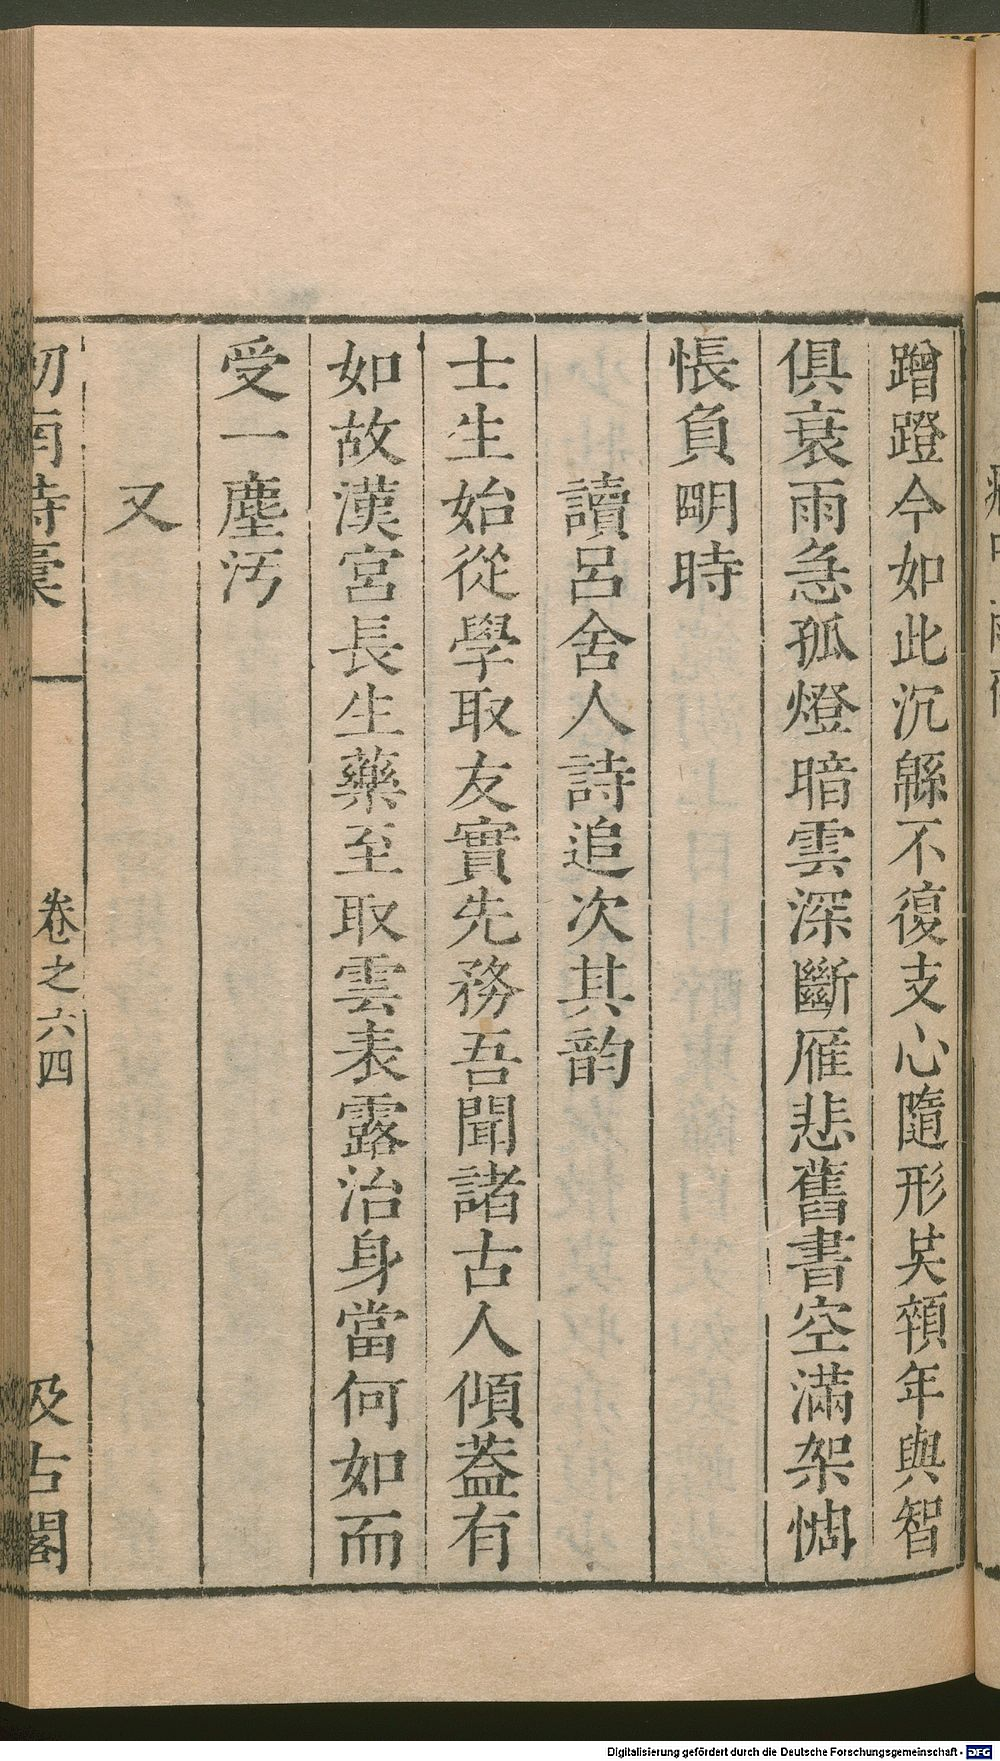 蹭蹬今如此沉緜不復支心隨形共顇年與智
俱衰雨急孤燈暗雲深斷雁悲舊書空滿架惆
悵負明時
讀呂舍人詩追次其韵
士生始從學取友實先務吾聞諸古人傾葢有
如故漢宮長生藥至取雲表露治身當何如而
受一塵汚
又
劒南詩稾
卷之六
四
汲古閣
Digitalisierung gefördert durch die Deutsche Forschungsgemeinschaft - DFG